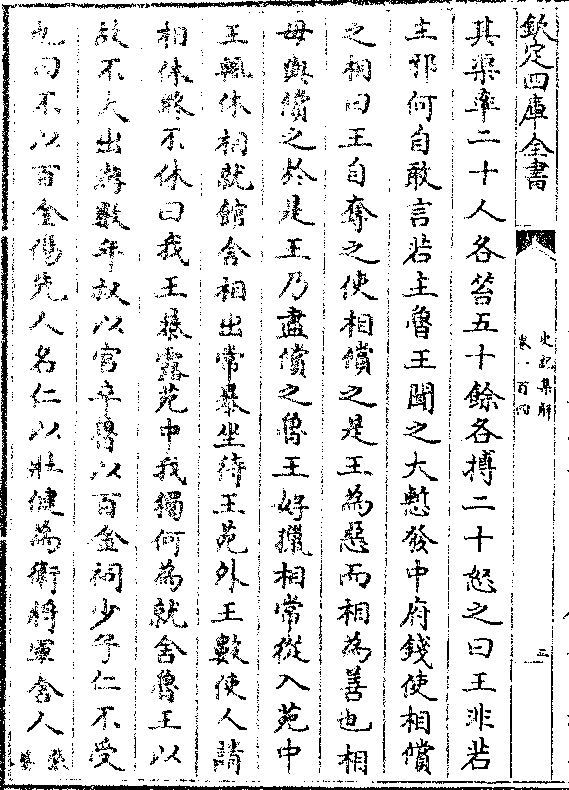 欽定四庫全書
史記集解
卷一百四
三
其渠率二十人各笞五十餘各搏二十怒之曰王非若
主邪何自敢言若主魯王聞之大慙發中府錢使相償
之相曰王自奪之使相償之是王為惡而相為善也相
毋與償之於是王乃盡償之魯王好獵相常從入苑中
王輒休相就館舍相出常暴坐待王苑外王數使人請
相休終不休曰我王暴露苑中我獨何為就舍魯王以
故不大出游數年叔以官卒魯以百金祠少子仁不受
也曰不以百金傷先人名仁以壯健為衛將軍舍人